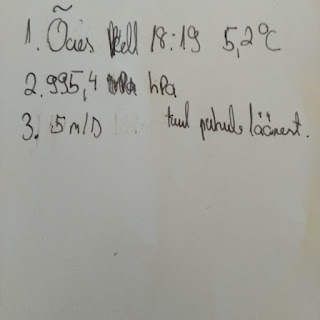 1. Õues kell 18:19 5,2°C
2. 995,4 hPa
3. 5 m/s tuul puhub läänest.